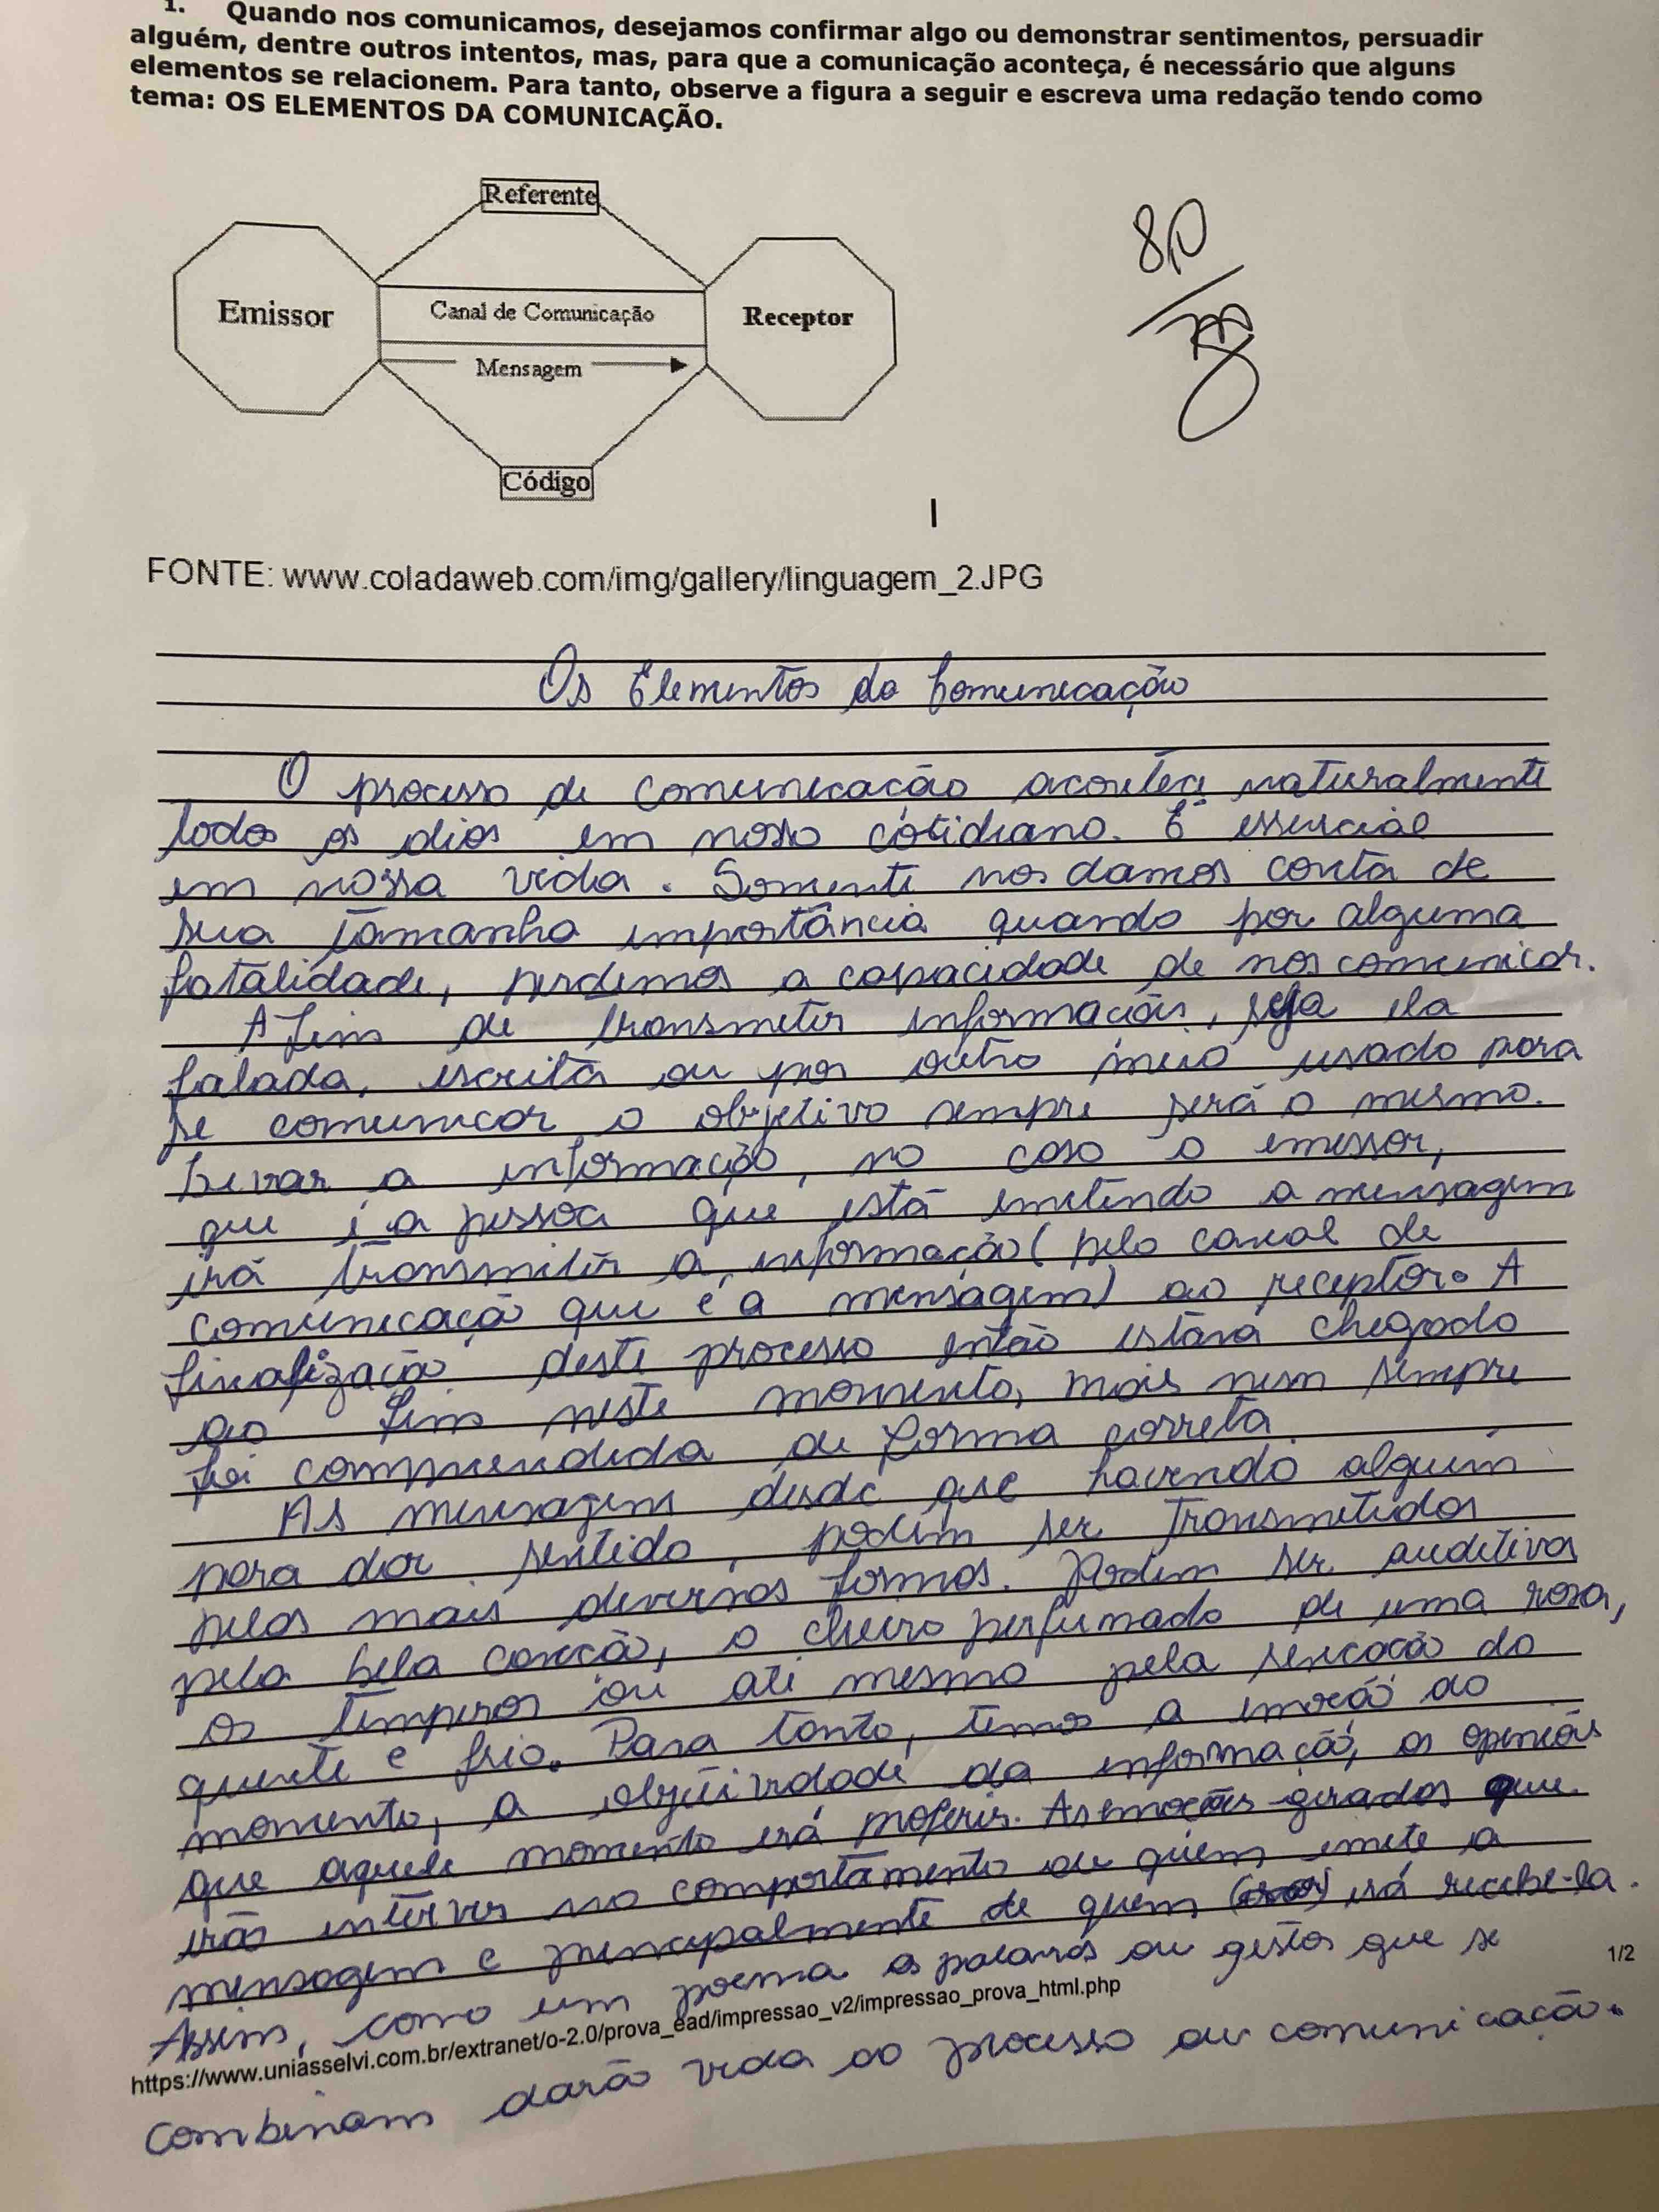 1. Quando nos comunicamos, desejamos confirmar algo ou demonstrar sentimentos, persuadir
alguém, dentre outros intentos, mas, para que a comunicação aconteça, é necessário que alguns
elementos se relacionem. Para tanto, observe a figura a seguir e escreva uma redação tendo como
tema: OS ELEMENTOS DA COMUNICAÇÃO.
Referente
8,0
Emissor
Canal de Comunicação
Receptor
Mensagem
Código
FONTE: www.coladaweb.com/img/gallery/linguagem_2.JPG
Os Elementos da Comunicação
O processo de comunicação acontece naturalmente
todos os dias em nosso cotidiano. É essencial
em nossa vida. Somente nos damos conta de
sua tamanha importância quando por alguma
fatalidade, perdemos a capacidade de nos comunicar.
A fim de transmitir informação, seja ela
falada, escrita ou por outro meio usado para
se comunicar o objetivo sempre será o mesmo.
Levar a informação, no caso o emissor,
que é a pessoa que está emitindo a mensagem
irá transmitir a informação (pelo canal de
comunicação que é a mensagem) ao receptor. A
finalização deste processo então estará chegado
ao fim neste momento, mais nem sempre
foi compreendida de forma correta.
As mensagem desde que havendo alguém
para dar sentido, podem ser transmitidas
pelas mais diversas formas. Podem ser auditivas
pela bela canção, o cheiro perfumado de uma rosa,
os temperos ou até mesmo pela sensação do
quente e frio. Para tanto, temos a emoção do
momento, a objetividade da informação, as opiniões
que aquele momento irá proferir. As emoções geradas que
irão intervir no comportamento de quem emite a
mensagem e principalmente de quem irá recebe-la.
Assim, como um poema as palavras ou gestos que se
1/2
https://www.uniasselvi.com.br/extranet/o-2.0/prova_ead/impressao_v2/impressao_prova_html.php
combinam darão vida ao processo de comunicação.